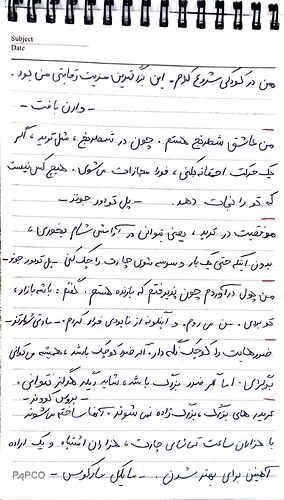 Subject
Date
من در کودکی شروع کردم. این بزرگترین مزیت رقابتی من بود.
- وارن بافت -
من عاشق شطرنج هستم. چون در شطرنج، مثل ترید، اگر
یک حرکت احمقانه بکنی، فورا مجازات می‌شوی. هیچ کس نیست
که تو را نجات دهد. - پل تودور جونز -
موفقیت در ترید، یعنی بتوانی در آرامش شام بخوری،
بدون اینکه حتی یک بار وسوسه شوی چارت را چک کنی - پل تودور جونز -
من پول درآوردم چون پذیرفتم که بازنده هستم. گفتم: باشه بازار،
تو بردی. من می روم. و اینگونه از نابودی فرار کردم. - مارتی شوارتز -
ضررهایت را کوچک نگه دار. اگر ضرر کوچک باشد، همیشه می‌توانی
برگردی. اما اگر ضرر بزرگ باشد، شاید دیگر هرگز نتوانی.
- بروس کوونر -
تریدر های بزرگ، بزرگ زاده نمی شوند. آنها ساخته می‌شوند
با هزاران ساعت تماشای چارت، هزاران اشتباه و یک اراده
آهنین برای بهتر شدن. - مایکل مارکوس -
PAPCO